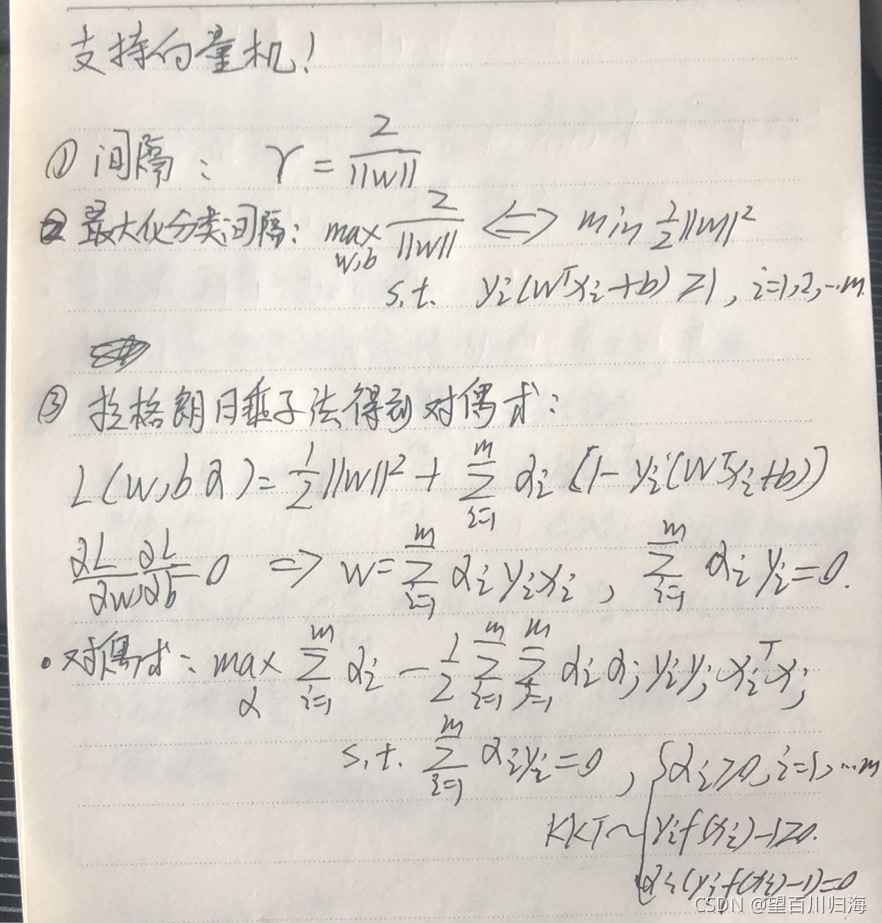 支持向量机!
① 间隔: γ = 2/||w||
② 最大化分类间隔: max_{w,b} 2/||w|| <=> min 1/2||w||²
s.t. yi(wᵀxi+b) ≥1, i=1,2,...m.
③ 拉格朗日乘子法得到对偶式:
L(w,b α) = 1/2||w||² + Σ_{i=1}^{m} αi (1-yi(wᵀxi+b))
∂L/∂w, ∂L/∂b = 0 => w = Σ_{i=1}^{m} αi yi xi, Σ_{i=1}^{m} αi yi = 0.
·对偶式: max_α Σ_{i=1}^{m} αi - 1/2 Σ_{i=1}^{m} Σ_{j=1}^{m} αi αj yi yj xiᵀxj
s.t. Σ_{i=1}^{m} αi yi = 0, { αi ≥0, i=1,...m
KKT~ yi f(xi)-1≥0.
αi(yi f(xi)-1)=0
CSDN @望百川归海